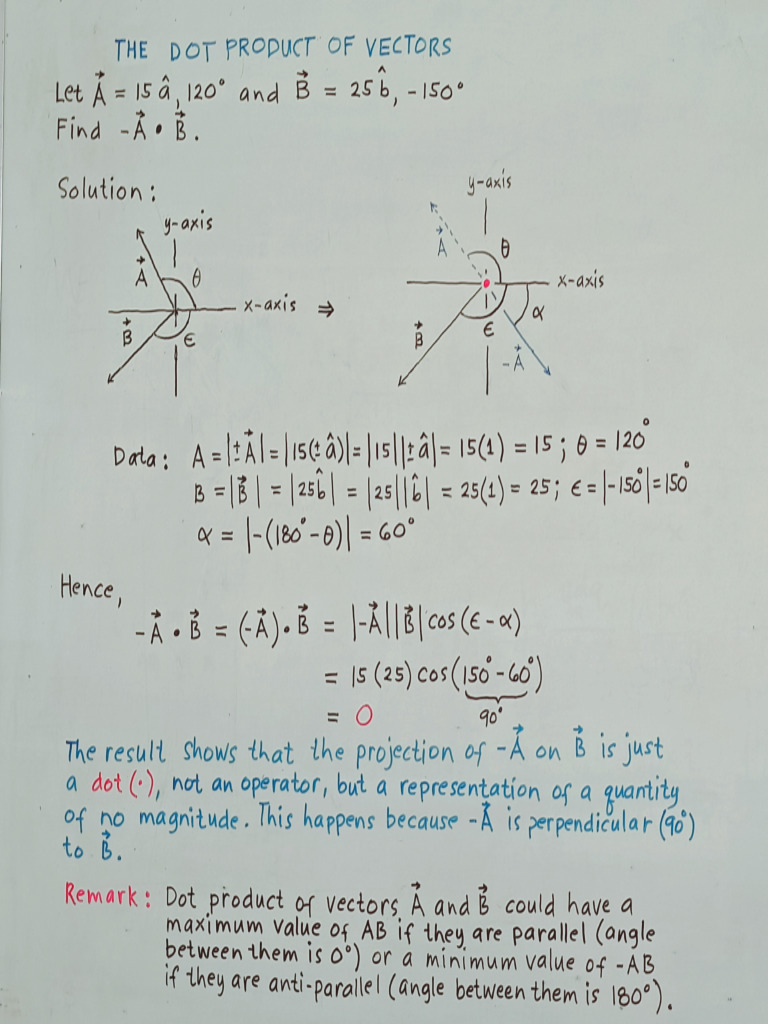 THE DOT PRODUCT OF VECTORS
Let A⃗ = 15 â, 120° and B⃗ = 25 b̂, -150°
Find -A⃗ • B⃗.
Solution:
y-axis
A⃗
θ
x-axis ⇒
B⃗
ϵ
y-axis
A⃗
θ
x-axis
α
B⃗
ϵ
-A⃗
Data: A = |±A⃗| = |15(±â)| = |15||±â| = 15(1) = 15; θ = 120°
B = |B⃗| = |25b̂| = |25||b̂| = 25(1) = 25; ϵ = |-150°| = 150°
α = |-(180° - θ)| = 60°
Hence,
-A⃗ • B⃗ = (-A⃗) • B⃗ = |-A⃗||B⃗| cos (ϵ - α)
= 15 (25) cos (150° - 60°)
= 0
90°
The result shows that the projection of -A⃗ on B⃗ is just
a dot (·), not an operator, but a representation of a quantity
of no magnitude. This happens because -A⃗ is perpendicular (90°)
to B⃗.
Remark: Dot product of vectors A⃗ and B⃗ could have a
maximum value of AB if they are parallel (angle
between them is 0°) or a minimum value of -AB
if they are anti-parallel (angle between them is 180°).